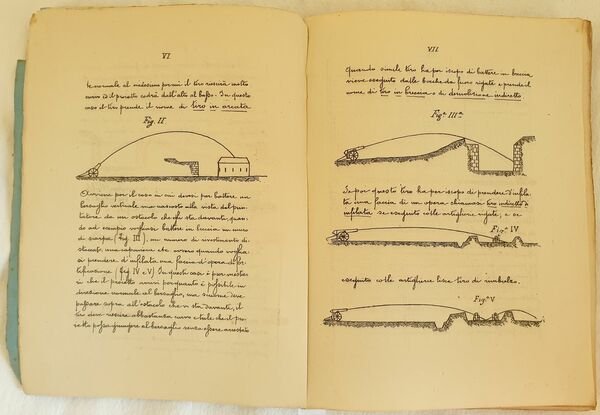 VI
te normale al medesimo perciò il tiro riescirà molto
curvo ed il proietto cadrà dall'alto al basso. In questo
caso il tiro prende il nome di tiro in arcata
Fig. II
Avviene poi il caso in cui devesi per battere un
bersaglio verticale ma nascosto alla vista del pun-
tatore da un ostacolo che gli sta davanti, quan-
do ad esempio vogliasi battere in breccia un muro
di scarpa (Fig. III), un muro di rivestimento di-
staccato, una caponiera che come quando voglia-
si prendere d'infilata una faccia d'opera di for-
tificazione (fig IV e V) In questi casi è pur mestie-
ri che il proietto arrivi per quanto è possibile in
direzione normale al bersaglio, ma siccome deve
passare sopra all'ostacolo che vi sta davanti, il
tiro deve riescire abbastanza curvo e tale che il pro-
ietto possa giungere al bersaglio senza essere arrestato
VII
Quando simile tiro ha per iscopo di battere in breccia
viene eseguito dalle bocche da fuoco rigate e prende il
nome di tiro in breccia o di demolizione indiretto
Fig.ª III.ª
Se poi questo tiro ha per iscopo di prendere d'infila-
ta una faccia di un'opera chiamasi tiro indiretto d'
infilata se eseguito colle artiglierie rigate, e se
Fig.ª IV
eseguito colle artiglierie liscie tiro di rimbalzo.
Fig.ª V